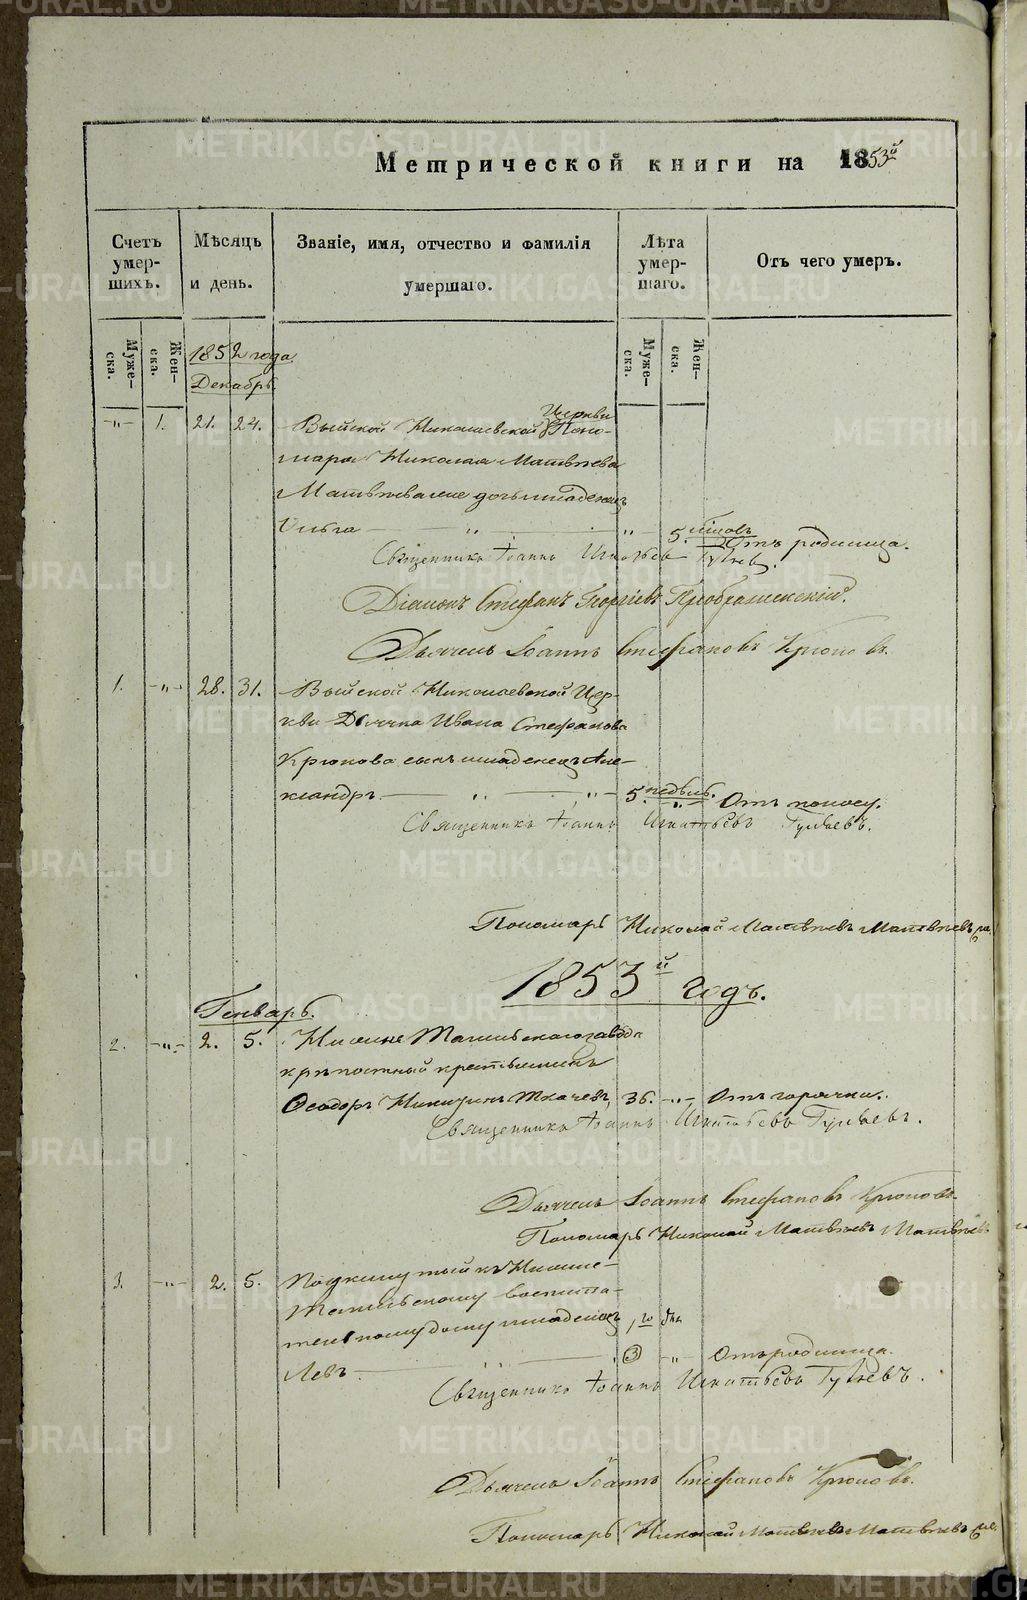 Метрической книги на 1853й
Счетъ умершихъ.
Мѣсяцъ и день.
Званіе, имя, отчество и фамилія умершаго.
Лѣта умершаго.
Отъ чего умеръ.
Мужеска.
Женска.
Мужеска.
Женска.
1852 года
Декабрь
-"- 1. 21. 24. Выйской Николаевской Церкви Поно-
маря Николая Матвѣева
Матвѣева дочь младенецъ
Ольга " " 5. Отъ родимца.
Священникъ Іоаннъ Игнатьевъ Гуляевъ.
Діаконъ Стефанъ Георгіевъ Преображенскій.
Дьячекъ Іоаннъ Стефановъ Крюковъ.
1. -"- 28. 31. Выйской Николаевской Цер-
кви Дьячка Ивана Стефанова
Крюкова сынъ младенецъ Але-
ксандръ " " 5. недѣль. -"- Отъ поносу.
Священникъ Іоаннъ Игнатьевъ Гуляевъ.
Пономарь Николай Матвѣевъ Матвѣевъ
1853й годъ.
Генварь.
2. -"- 2. 5. Нижне Тагильскаго завода
крѣпостный крестьянинъ
Ѳеодоръ Никитинъ Ткачевъ, 36. -"- Отъ горячки.
Священникъ Іоаннъ Игнатьевъ Гуляевъ.
Дьячекъ Іоаннъ Стефановъ Крюковъ.
Пономарь Николай Матвѣевъ Матвѣевъ
3. -"- 2. 5. Подкинутый къ Нижне-
Тагильскому воспита-
тельному дому младенецъ
Левъ 3 -"- Отъ родимца.
Священникъ Іоаннъ Игнатьевъ Гуляевъ.
Дьячекъ Іоаннъ Стефановъ Крюковъ.
Пономарь Николай Матвѣевъ Матвѣевъ
METRIKI.GASO-URAL.RU